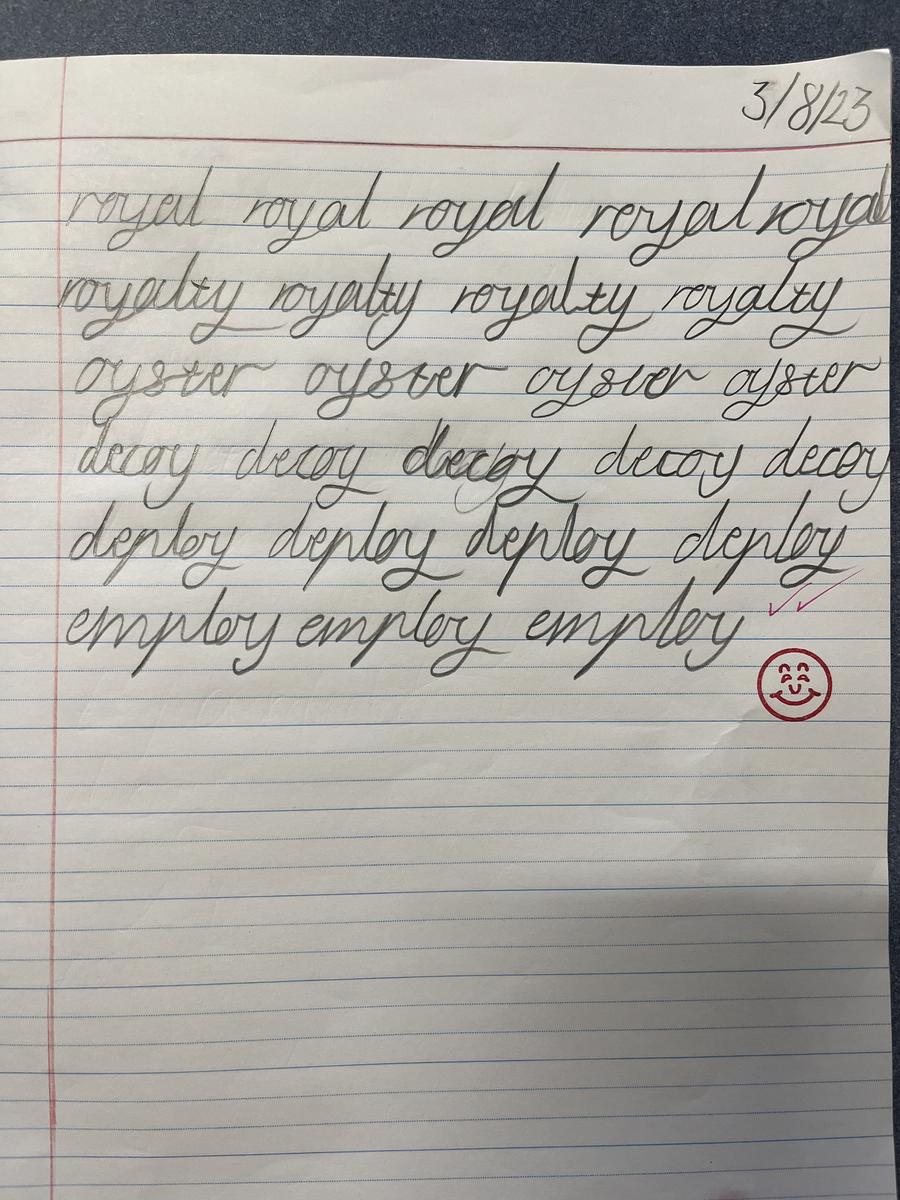 3/8/23
royal royal royal royal royal
royalty royalty royalty royalty
oyster oyster oyster oyster
decoy decoy decoy decoy decoy
deploy deploy deploy deploy
employ employ employ